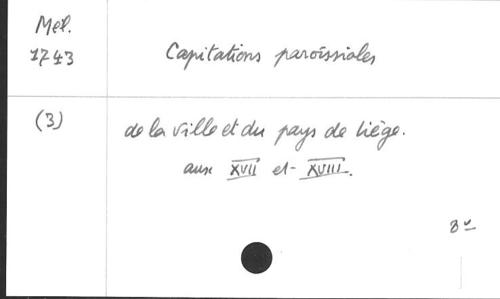 Mél.
1743
Capitations paroissiales
(3)
de la ville et du pays de Liége.
aux XVII et XVIII.